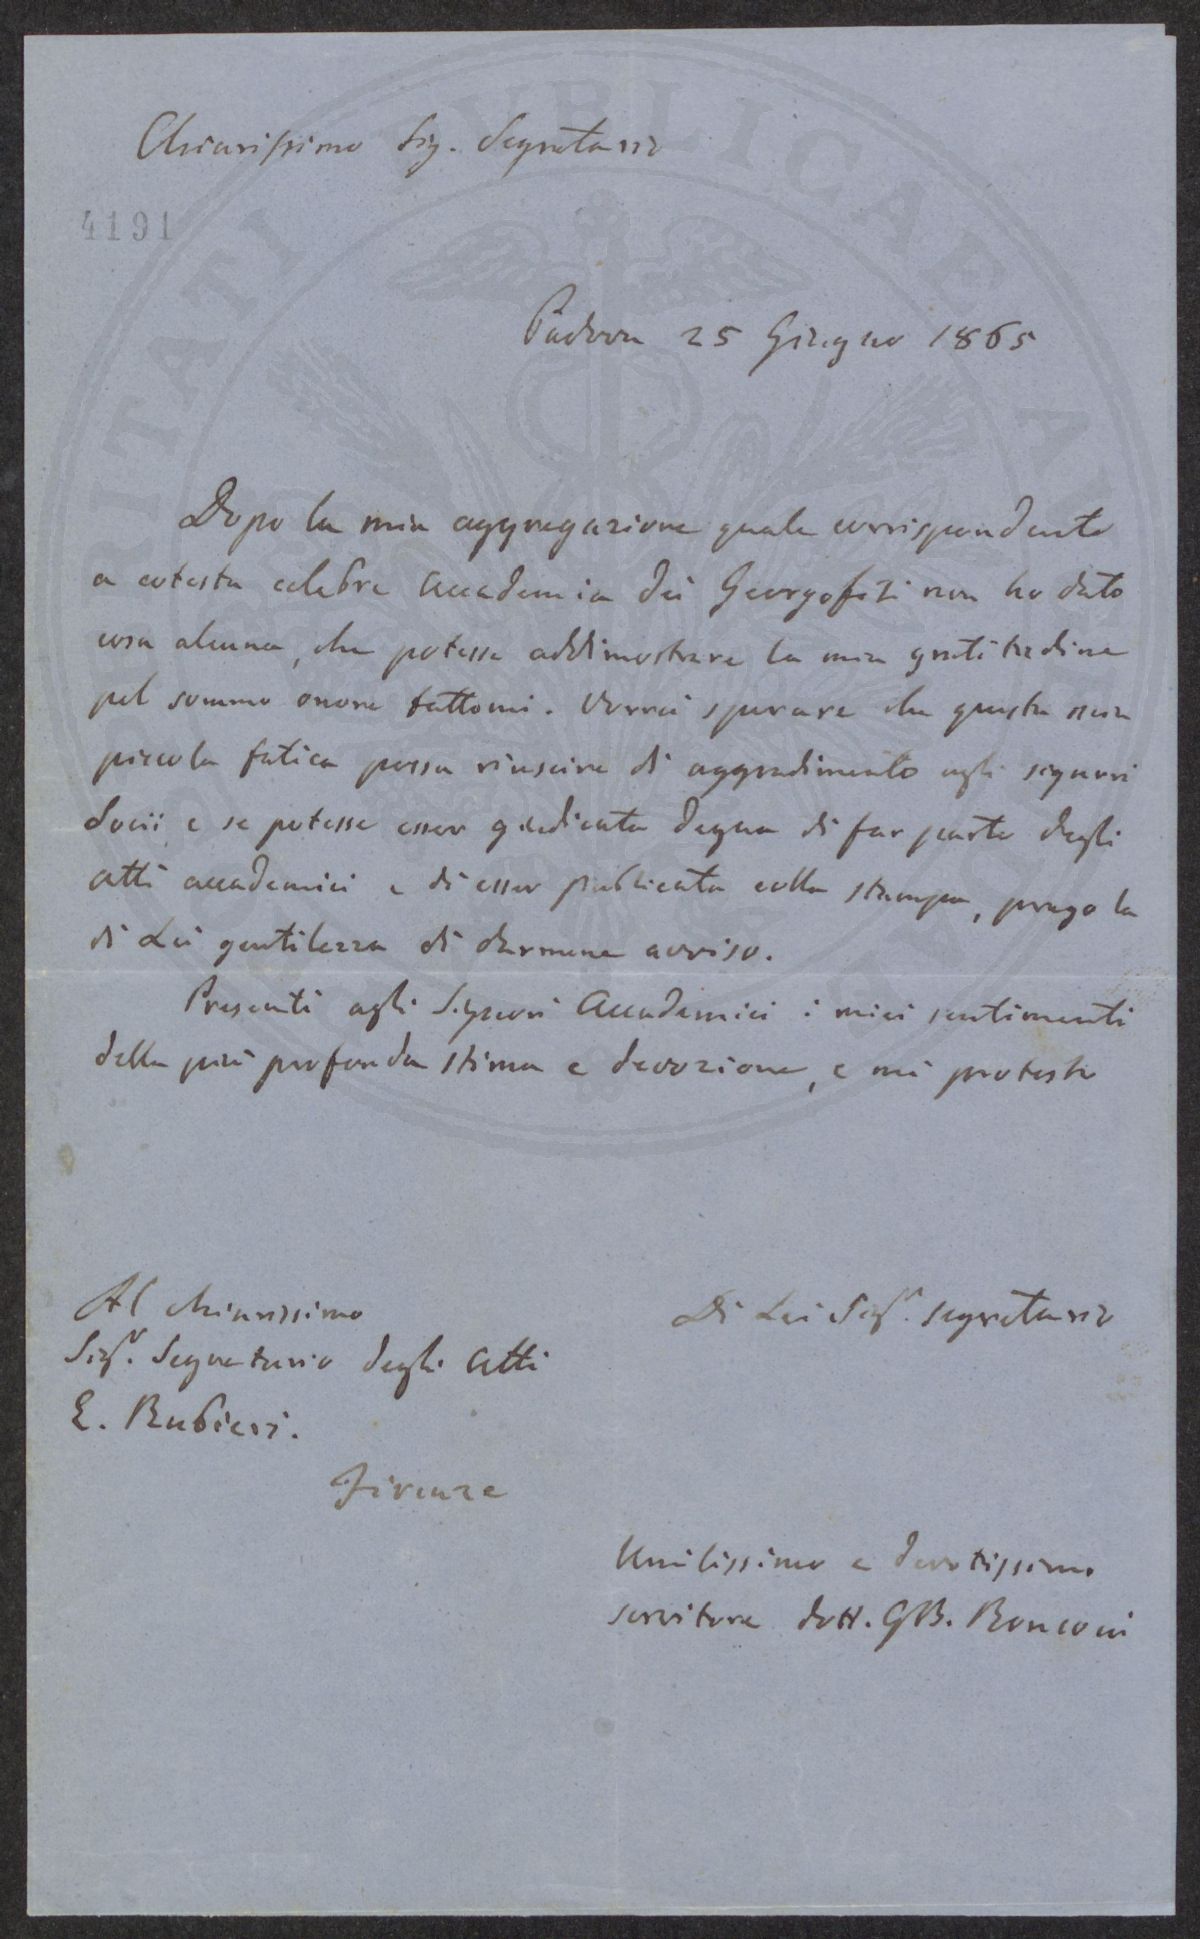 Chiarissimo Sig. Segretario
4191
Padova 25 Giugno 1865
Dopo la mia aggregazione quale corrispondente
a cotesta celebre Accademia dei Georgofili non ho dato
cosa alcuna, che potesse addimostrare la mia gratitudine
pel sommo onore fattomi. Vorrei sperare che questa mia
piccola fatica possa riuscire di aggradimento agli signori
Socii e se potesse esser giudicata degna di far parte degli
atti accademici e di esser publicata colla stampa, prego la
di Lei gentilezza di darmene avviso.
Presenti agli Signori Accademici i miei sentimenti
della più profonda stima e devozione, e mi protesto
Di Lei Sigr. segretario
Al chiarissimo
Sigr. Segretario degli Atti
E. Rubieri.
Firenze
Umilissimo e devotissimo
servitore dott. GB. Ronconi